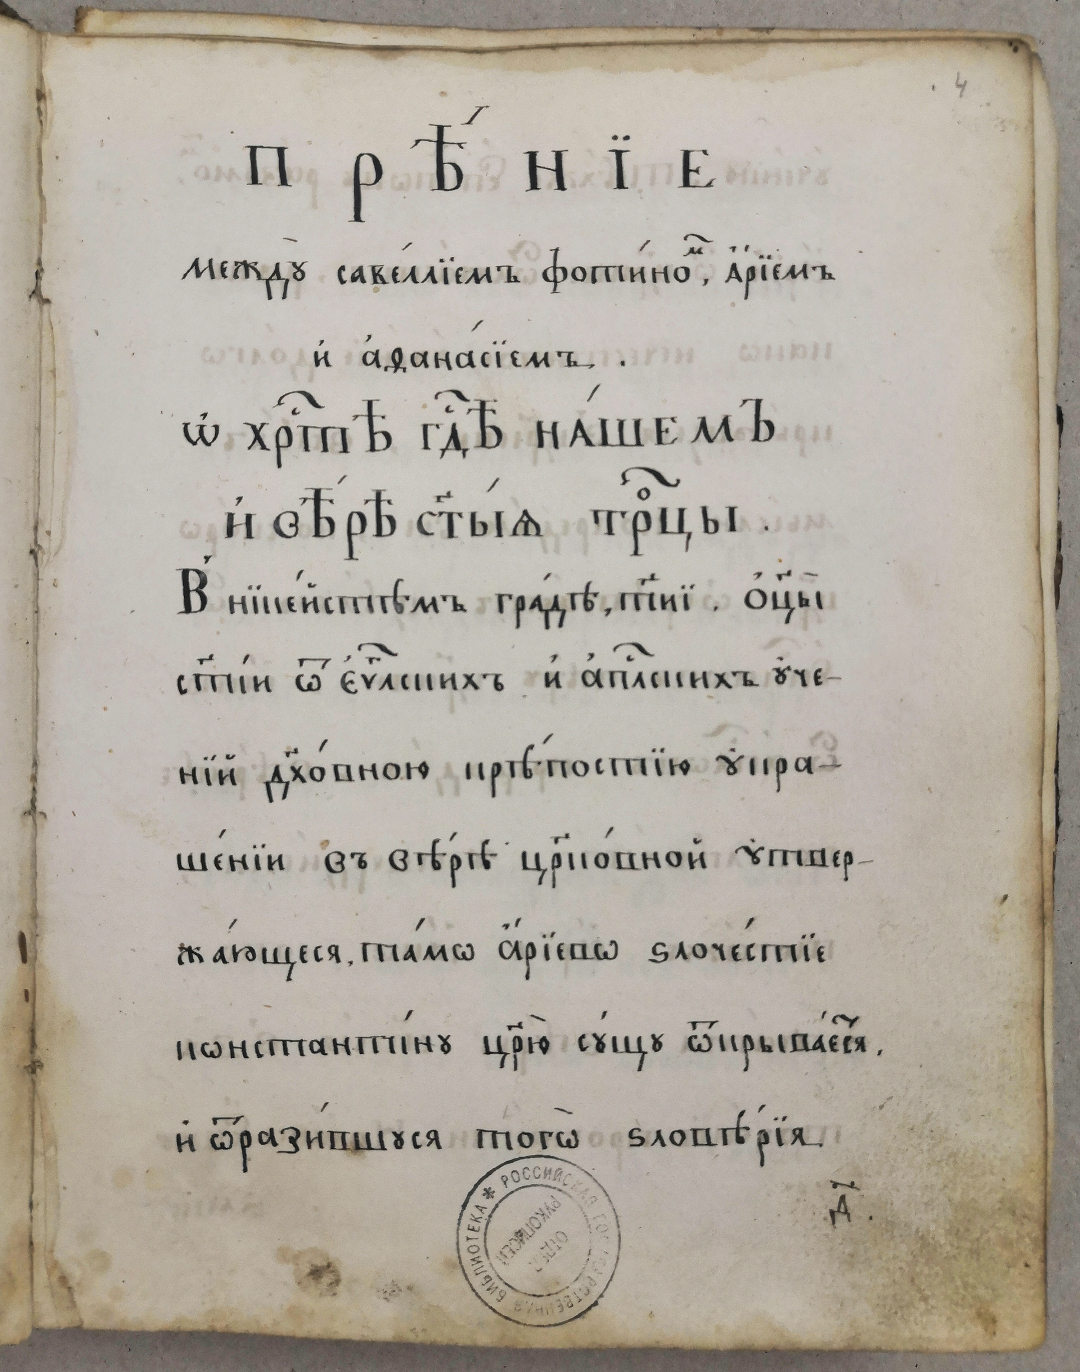 4
ПРѢ́НЇЕ
междꙋ̀ саве́ллїемъ фоти́ноⷨ, а҆́рїемъ
и҆ а҆ѳана́сїемъ .
ѡ҆ хрⷭ҇тѣ гдⷭ҇ѣ на́шемъ
и҆ вѣ́рѣ ст҃ы́ѧ трⷪ҇цы .
В̾ нїке́йстѣмъ гра́дѣ, т҃иї . ѻ҆ц҃ы̀
ст҃і́и ѿ є҆ѵⷢ҇лскихъ и҆ а҆пⷭ҇лскихъ ᲂу҆че-
нїй дх҃о́вною крѣ́постїю ᲂу҆кра-
ше́нїи въ вѣ́рѣ цр҃ко́вной ᲂу҆твер-
жа́ющеся, та́мѡ а҆́рїево ѕлоче́стїе
кѡнстанти́ну цр҃ю̀ су́щу ѿкрыва́єсѧ,
и҆ ѿрази́вшуся тогѡ̀ ѕловѣ́рїя
д҃.
РОССИЙСКАЯ ГОСУДАРСТВЕННАЯ БИБЛИОТЕКА *
ОТДЕЛ
РУКОПИСЕЙ